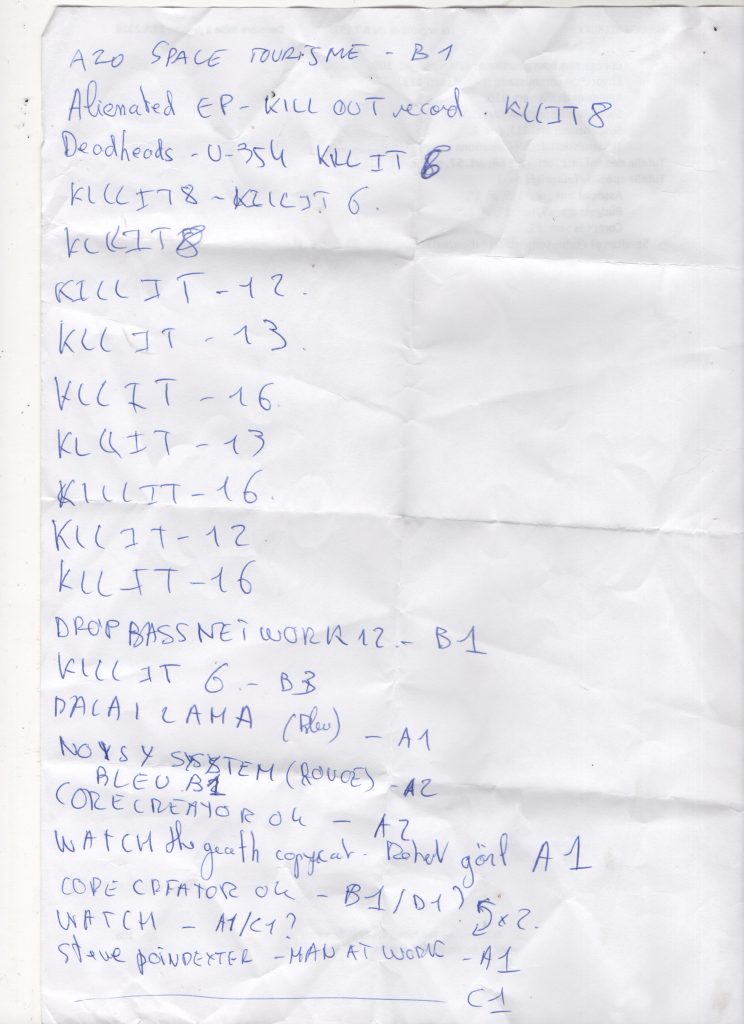 A20 SPACE TOURISME - B1
Alienated EP - KILL OUT record. KLLIT 8
Deadheads - U-354 KILL IT 6
KILLIT 8 - KILLIT 6.
KLKIT 8
KILLIT - 12.
KLLIT - 13.
KLLIT - 16.
KLLIT - 13
KILLIT - 16.
KLLIT - 12
KLLIT - 16
DROP BASS NETWORK 12 - B1
KILL IT 6 - B3
DALAI LAMA (bleu) - A1
NOYSY SYSTEM (ROUGE) - A2
BLEU B1
CORECREATOR 04 - A2
WATCH the copycat. Robot A1
CORE CREATOR 04 - B1/D1?
WATCH - A1/C1? x 2.
Steve POINDEXTER - MAN AT WORK - A1
C1